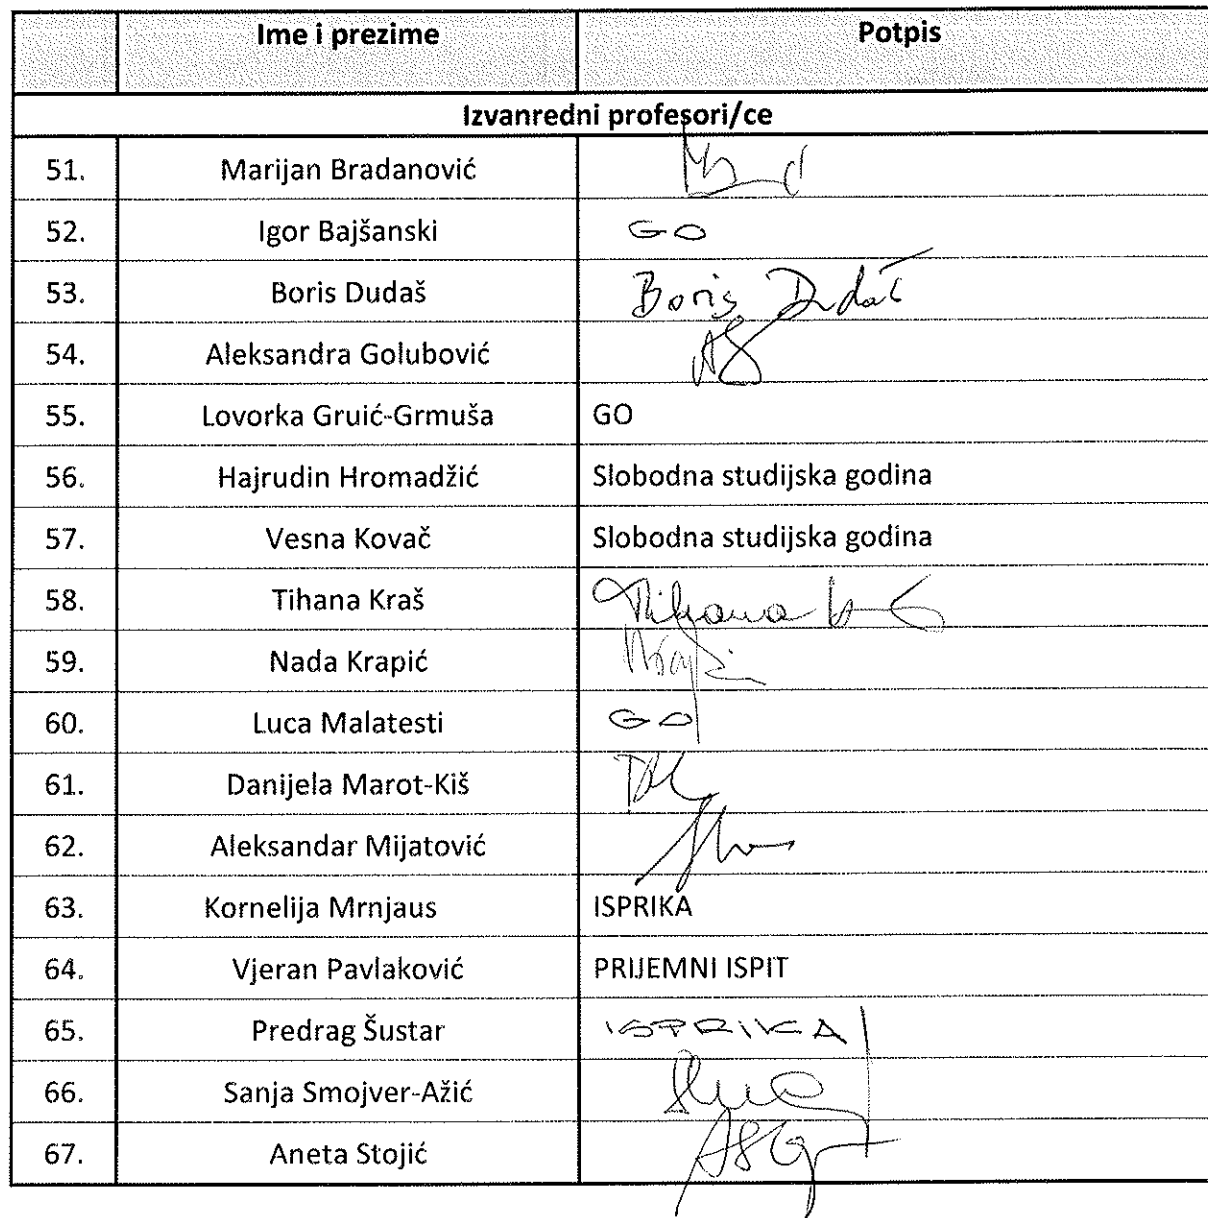 Ime i prezime Potpis
Izvanredni profesori/ce
51. Marijan Bradanović
52. Igor Bajšanski GO
53. Boris Dudaš Boris Dudaš
54. Aleksandra Golubović
55. Lovorka Gruić-Grmuša GO
56. Hajrudin Hromadžić Slobodna studijska godina
57. Vesna Kovač Slobodna studijska godina
58. Tihana Kraš Tihana
59. Nada Krapić
60. Luca Malatesti GO
61. Danijela Marot-Kiš
62. Aleksandar Mijatović
63. Kornelija Mrnjaus ISPRIKA
64. Vjeran Pavlaković PRIJEMNI ISPIT
65. Predrag Šustar ISPRIKA
66. Sanja Smojver-Ažić
67. Aneta Stojić